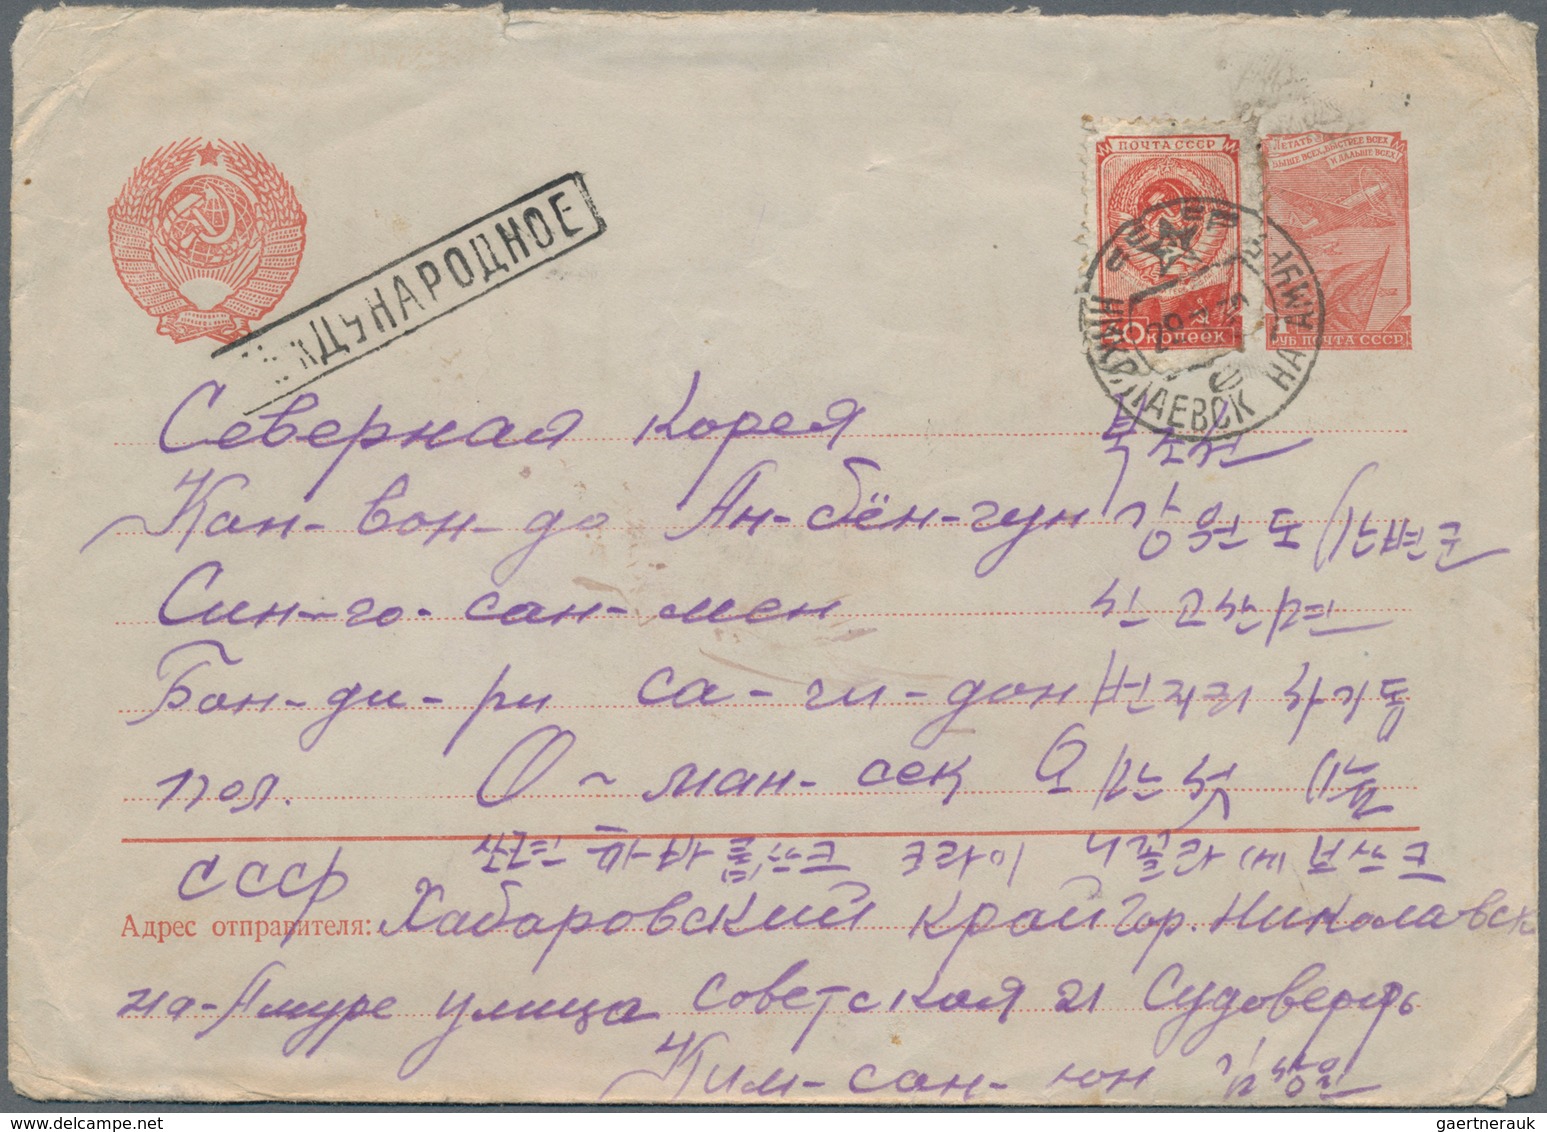 ПОЧТА СССР
ЛЕТАТЬ
ВЫШЕ ВСЕХ, БЫСТРЕЕ ВСЕХ
И ДАЛЬШЕ ВСЕХ!
ДУНАРОДНОЕ
КОПЕЕК
РУБ ПОЧТА СССР
НИКОЛАЕВСК НА АМУРЕ
Северная Корея 북조선
Кан-вон-до Ан-бён-гун 강원도 안변군
Син-го-сан-мен 신고산면
Бан-ди-ри са-ги-дон 번지리 사기동
пол. О-ман-сек 오만석
СССР 쏘련 하바롭쓰크 크라이 니꼴라에브쓰크
Адрес отправителя: Хабаровский край гор. Николаевск
на-Амуре улица Советская 21 Судоверфь
Ким-сан-юн
gaertnerauk